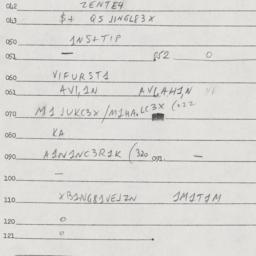 042 ZENTE4
043 $+ Q5 JINGL83X
050 1N5+T1P
051 — 052 0
060 V1FURST1
061 AV1,1N AVLAH1N
070 M1 JUKC3X/M1HA.LC3X (022
080 KA
090 A1N1NC3R1K (320 on. —
100 —
110 XB1NG81VEJZN 1M1T1M
120 0
121 0